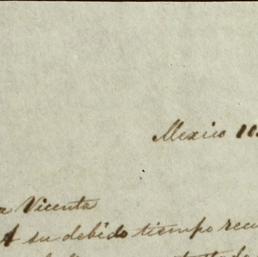 Mexico 11
a Vicenta
A su debido tiempo recu